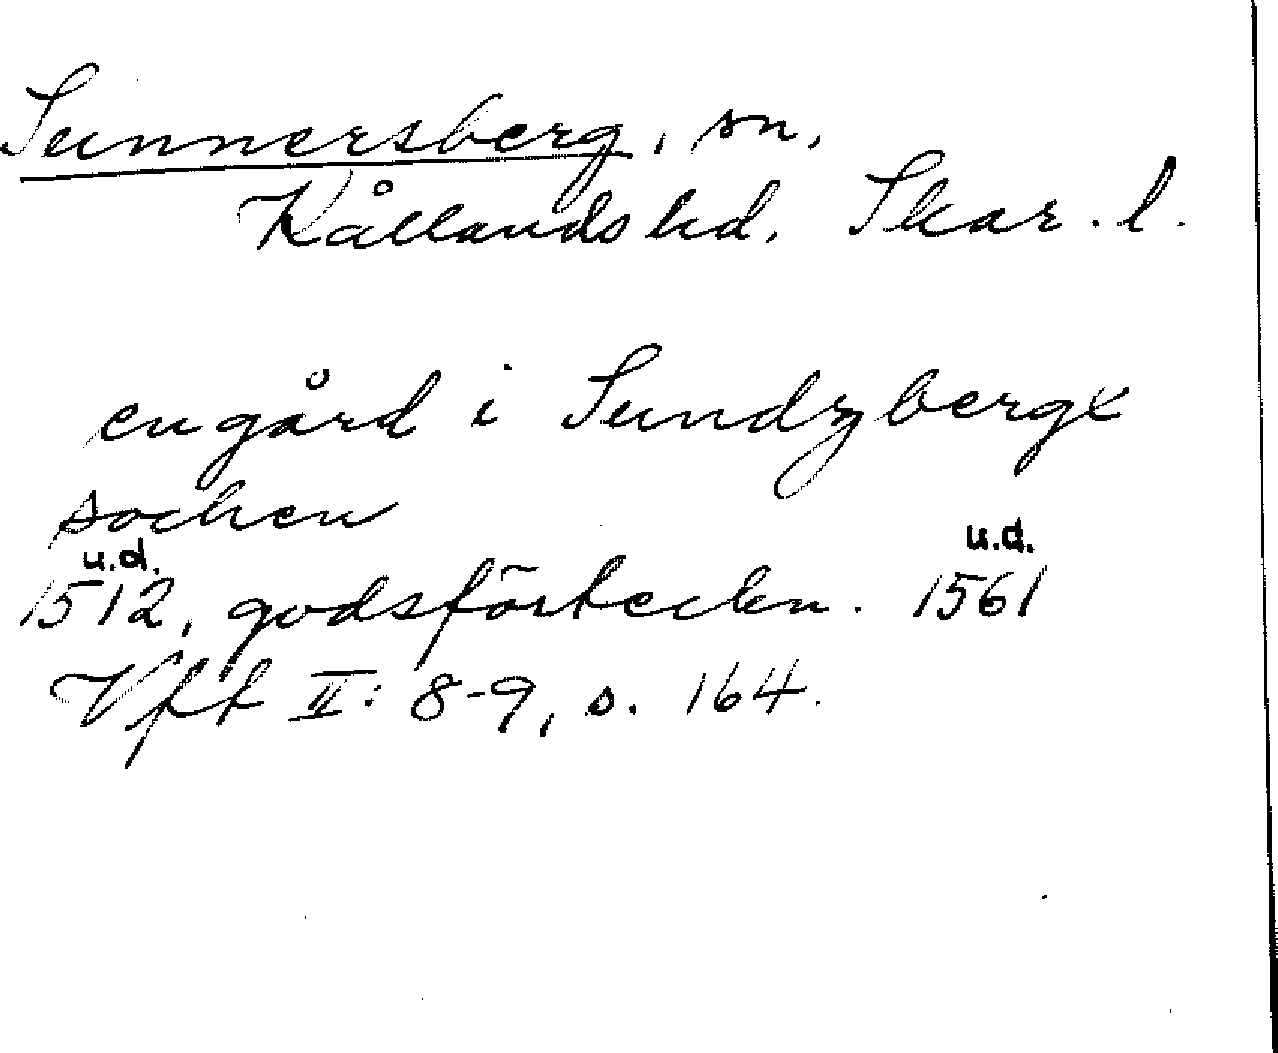 Sunnersberg, sn,
Kållands hd, Skar. l.
en gård i Sundzbergx
sochen
u.d. u.d.
1512, godsförteckn. 1561
Vfft II: 8-9, s. 164.